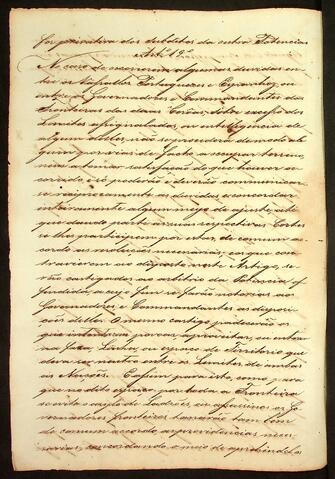 por privativo dos subditos da outra Potencia
Artº 19º
No caso de ocorrerem algumas duvidas en-
tre os Vassallos Portuguezes e Espanhoes, ou
entre os Governadores e Commandantes das
Fronteiras das duas Corôas, sobre excesso dos
Limites assignalados, ou intelligencia de
algum delles, não se procederá de modo al-
gum por vias de facto a occupar terreno,
nem a tomar satisfação do que houver oc-
corrido, e só poderão e deverão communicar-
se reciprocamente as duvidas e concordar
interinamente algum meio de ajuste, até
que dando parte as suas respectivas Cortes
se lhes participem por estas, de commum ac-
cordo as resoluções necessarias, e os que con-
travierem ao disposto neste Artigo, se-
rão castigados ao arbitrio da Potencia of-
fendida, e a cujo fim se farão notorias aos
Governadores e Commandantes as disposi-
ções delle. O mesmo castigo padecerão os
que intentarem povoar, aproveitar, ou entrar
na faxa, Linha, ou espaço de territorio que
deva ser neutro entre os Limites de ambas
as Nações. E assim para isto, como para
que no dito espaço por toda a Fronteira
se evite o asylo de Ladrões, ou assassinos os Go-
vernadores fronteiros tomarão tambem
de commum accordo as providencias neces-
sarias, concordando o meio de aprehendel-os